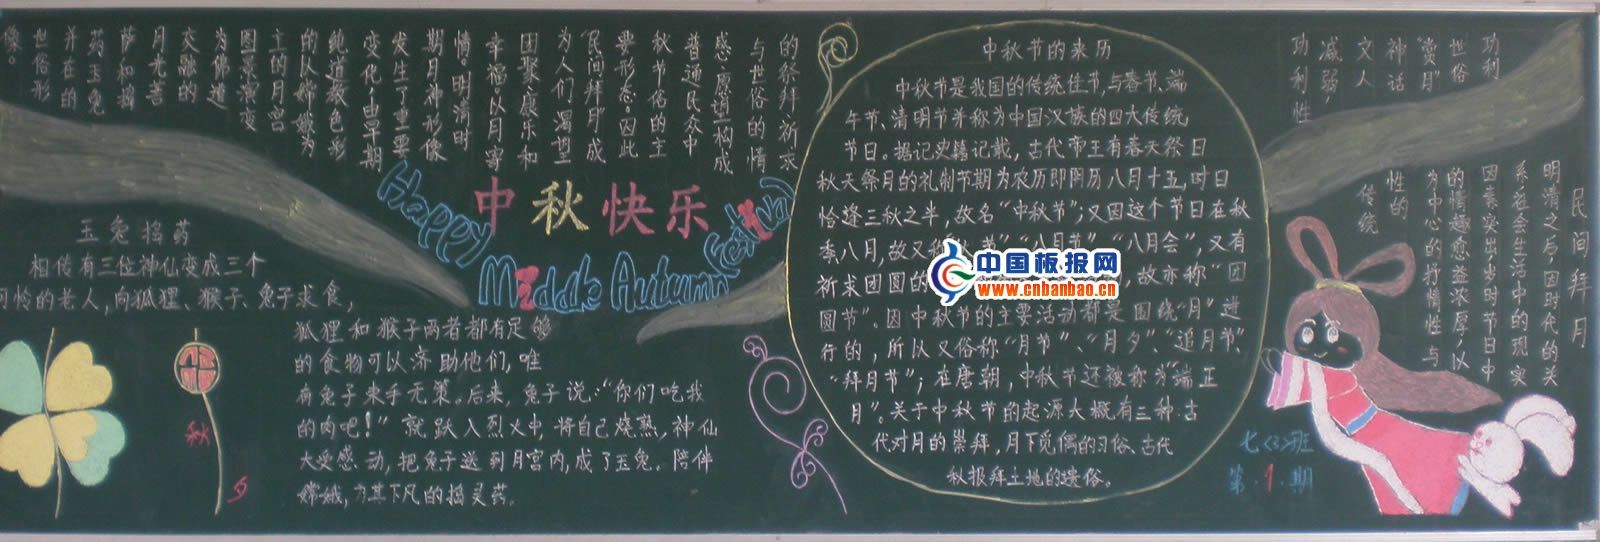 中秋快乐
Happy
Middle Autumn
Festival
中秋节的来历
中秋节是我国的传统佳节,与春节、端
午节、清明节并称为中国汉族的四大传统
节日。据记史籍记载,古代帝王有春天祭日
秋天祭月的礼制节期为农历即阴历八月十五,时日
恰逢三秋之半,故名“中秋节”;又因这个节日在秋
季八月,故又称“八月节”“八月会”,又有
祈求团圆的 故亦称“团
圆节”。因中秋节的主要活动都是围绕“月”进
行的,所以又俗称“月节”、“月夕”、“追月节”、
“拜月节”;在唐朝,中秋节还被称为“端正
月”。关于中秋节的起源大概有三种:古
代对月的崇拜,月下觅偶的习俗、古代
秋报拜土地的遗俗。
民间拜月
明清之后,因时代的关
系社会生活中的现实
因素突出,岁时节日中
的情趣愈益浓厚,以
为中心的抒情性与
性的
传统
功利
世俗
“赏月”
神话
文人
减弱,
功利性
的祭拜、祈求
与世俗的情
感、愿望构成
普通民众中
秋节俗的主
要形态。因此
“民间拜月”成
为人们渴望
团聚、康乐和
幸福。以月寄
情。明清时
期月神形像
发生了重要
变化,由早期
纯道教色彩
的以嫦娥为
主的月宫
图景演变
为佛道
交融的
月光菩
萨和捣
药玉兔
并在的
世俗形
像。
玉兔捣药
相传有三位神仙变成三个
可怜的老人,向狐狸、猴子、兔子求食,
狐狸和猴子两者都有足够
的食物可以济助他们,唯
有兔子束手无策。后来,兔子说:“你们吃我
的肉吧!”就跃入烈火中,将自己烧熟,神仙
大受感动,把兔子送到月宫内,成了玉兔。陪伴
嫦娥,为其下凡的捣灵药。
秋
夕
七〈3〉班
第·1·期
中国板报网
www.cnbanbao.cn